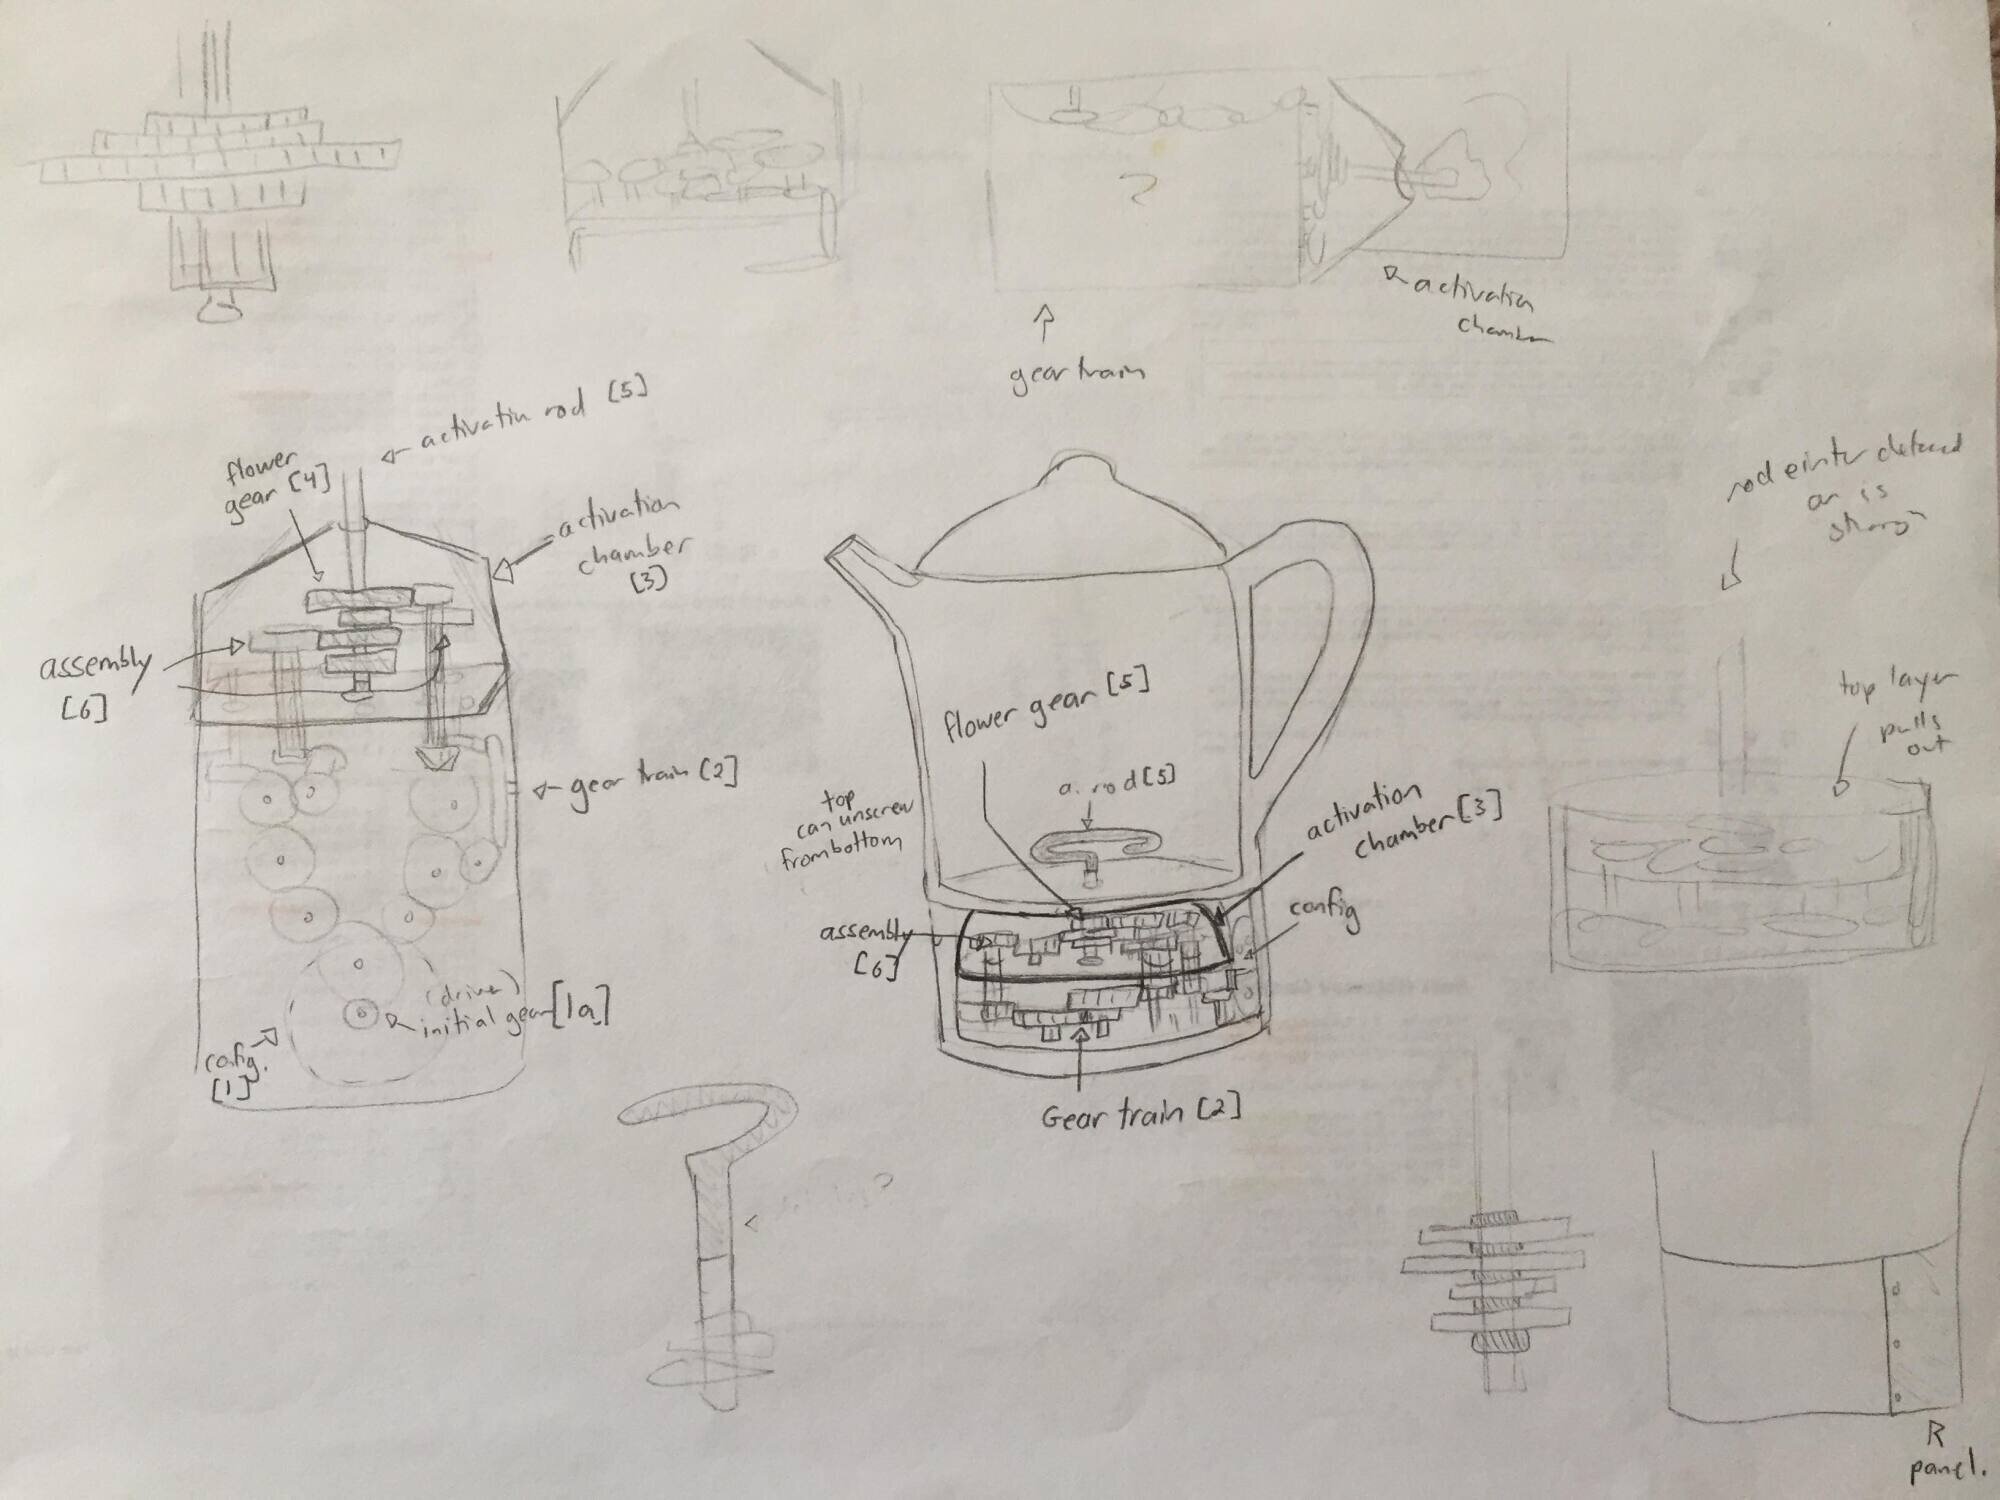 activatin
chamber
gear train
activatin rod [5]
flower
gear [4]
activation
chamber
[3]
assembly
[6]
gear train [2]
(driver)
initial gear [1a]
config.
[1]
flower gear [5]
a. rod [5]
top
can unscrew
from bottom
activation
chamber [3]
config
assembly
[6]
Gear train [2]
rod
or is
top layer
pulls
out
R
panel.